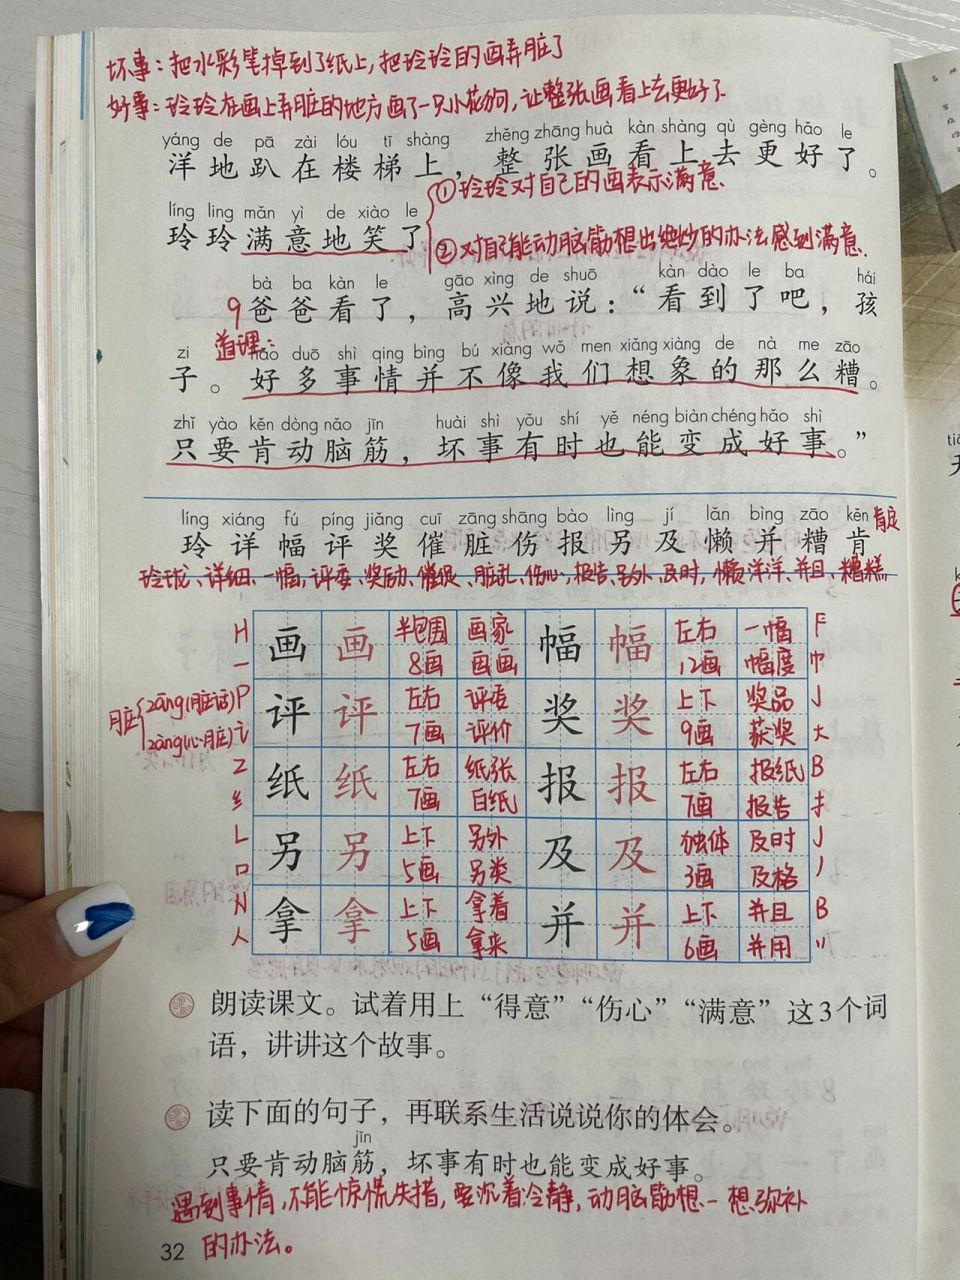 坏事：把水彩笔掉到了纸上，把玲玲的画弄脏了
好事：玲玲在画上弄脏的地方画了一只小花狗，让整张画看上去更好了.
yáng de pā zài lóu tī shàng zhěng zhāng huà kàn shàng qù gèng hǎo le
洋地趴在楼梯上，整张画看上去更好了。
①玲玲对自己的画表示满意.
líng ling mǎn yì de xiào le
玲玲满意地笑了。
②对自己能动脑筋想出绝妙的办法感到满意.
bà ba kàn le gāo xìng de shuō kàn dào le ba hái
9 爸爸看了，高兴地说：“看到了吧，孩
道理：
zi hǎo duō shì qing bìng bú xiàng wǒ men xiǎng xiàng de nà me zāo
子。好多事情并不像我们想象的那么糟。
zhǐ yào kěn dòng nǎo jīn huài shì yǒu shí yě néng biàn chéng hǎo shì
只要肯动脑筋，坏事有时也能变成好事。”
líng xiáng fú píng jiǎng cuī zāng shāng bào lìng jí lǎn bìng zāo kěn
玲详幅评奖催脏伤报另及懒并糟肯 肯定
玲珑、详细、一幅、评委、奖励、催促、脏乱、伤心、报告、另外、及时，懒洋洋、并且、糟糕
H 画 画 半包围 画家 幅 幅 左右 一幅 F
一 8画 画画 12画 幅度 巾
脏 zāng(脏话) P 评 评 左右 评委 奖 奖 上下 奖品 J
zàng(心脏) 讠 7画 评价 9画 获奖 大
Z 纸 纸 左右 纸张 报 报 左右 报纸 B
纟 7画 白纸 7画 报告 扌
L 另 另 上下 另外 及 及 独体 及时 J
口 5画 另类 3画 及格 丿
N 拿 拿 上下 拿着 并 并 上下 并且 B
人 5画 拿来 6画 并用 丷
朗读课文。试着用上“得意”“伤心”“满意”这3个词
语，讲讲这个故事。
读下面的句子，再联系生活说说你的体会。
jīn
只要肯动脑筋，坏事有时也能变成好事。
遇到事情，不能惊慌失措，要沉着冷静，动脑筋想一想弥补
32 的办法。